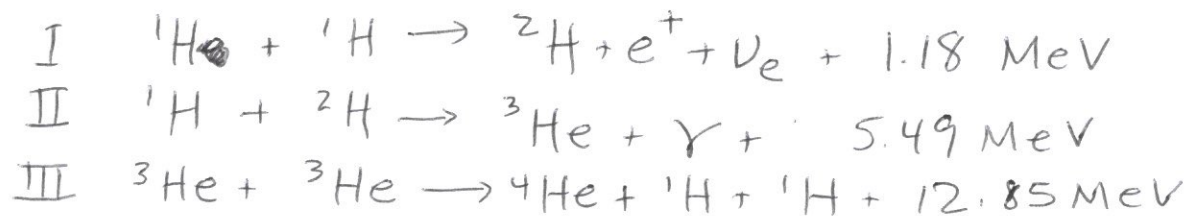 I ¹H + ¹H → ²H + e⁺ + νₑ + 1.18 MeV
II ¹H + ²H → ³He + γ + 5.49 MeV
III ³He + ³He → ⁴He + ¹H + ¹H + 12.85 MeV